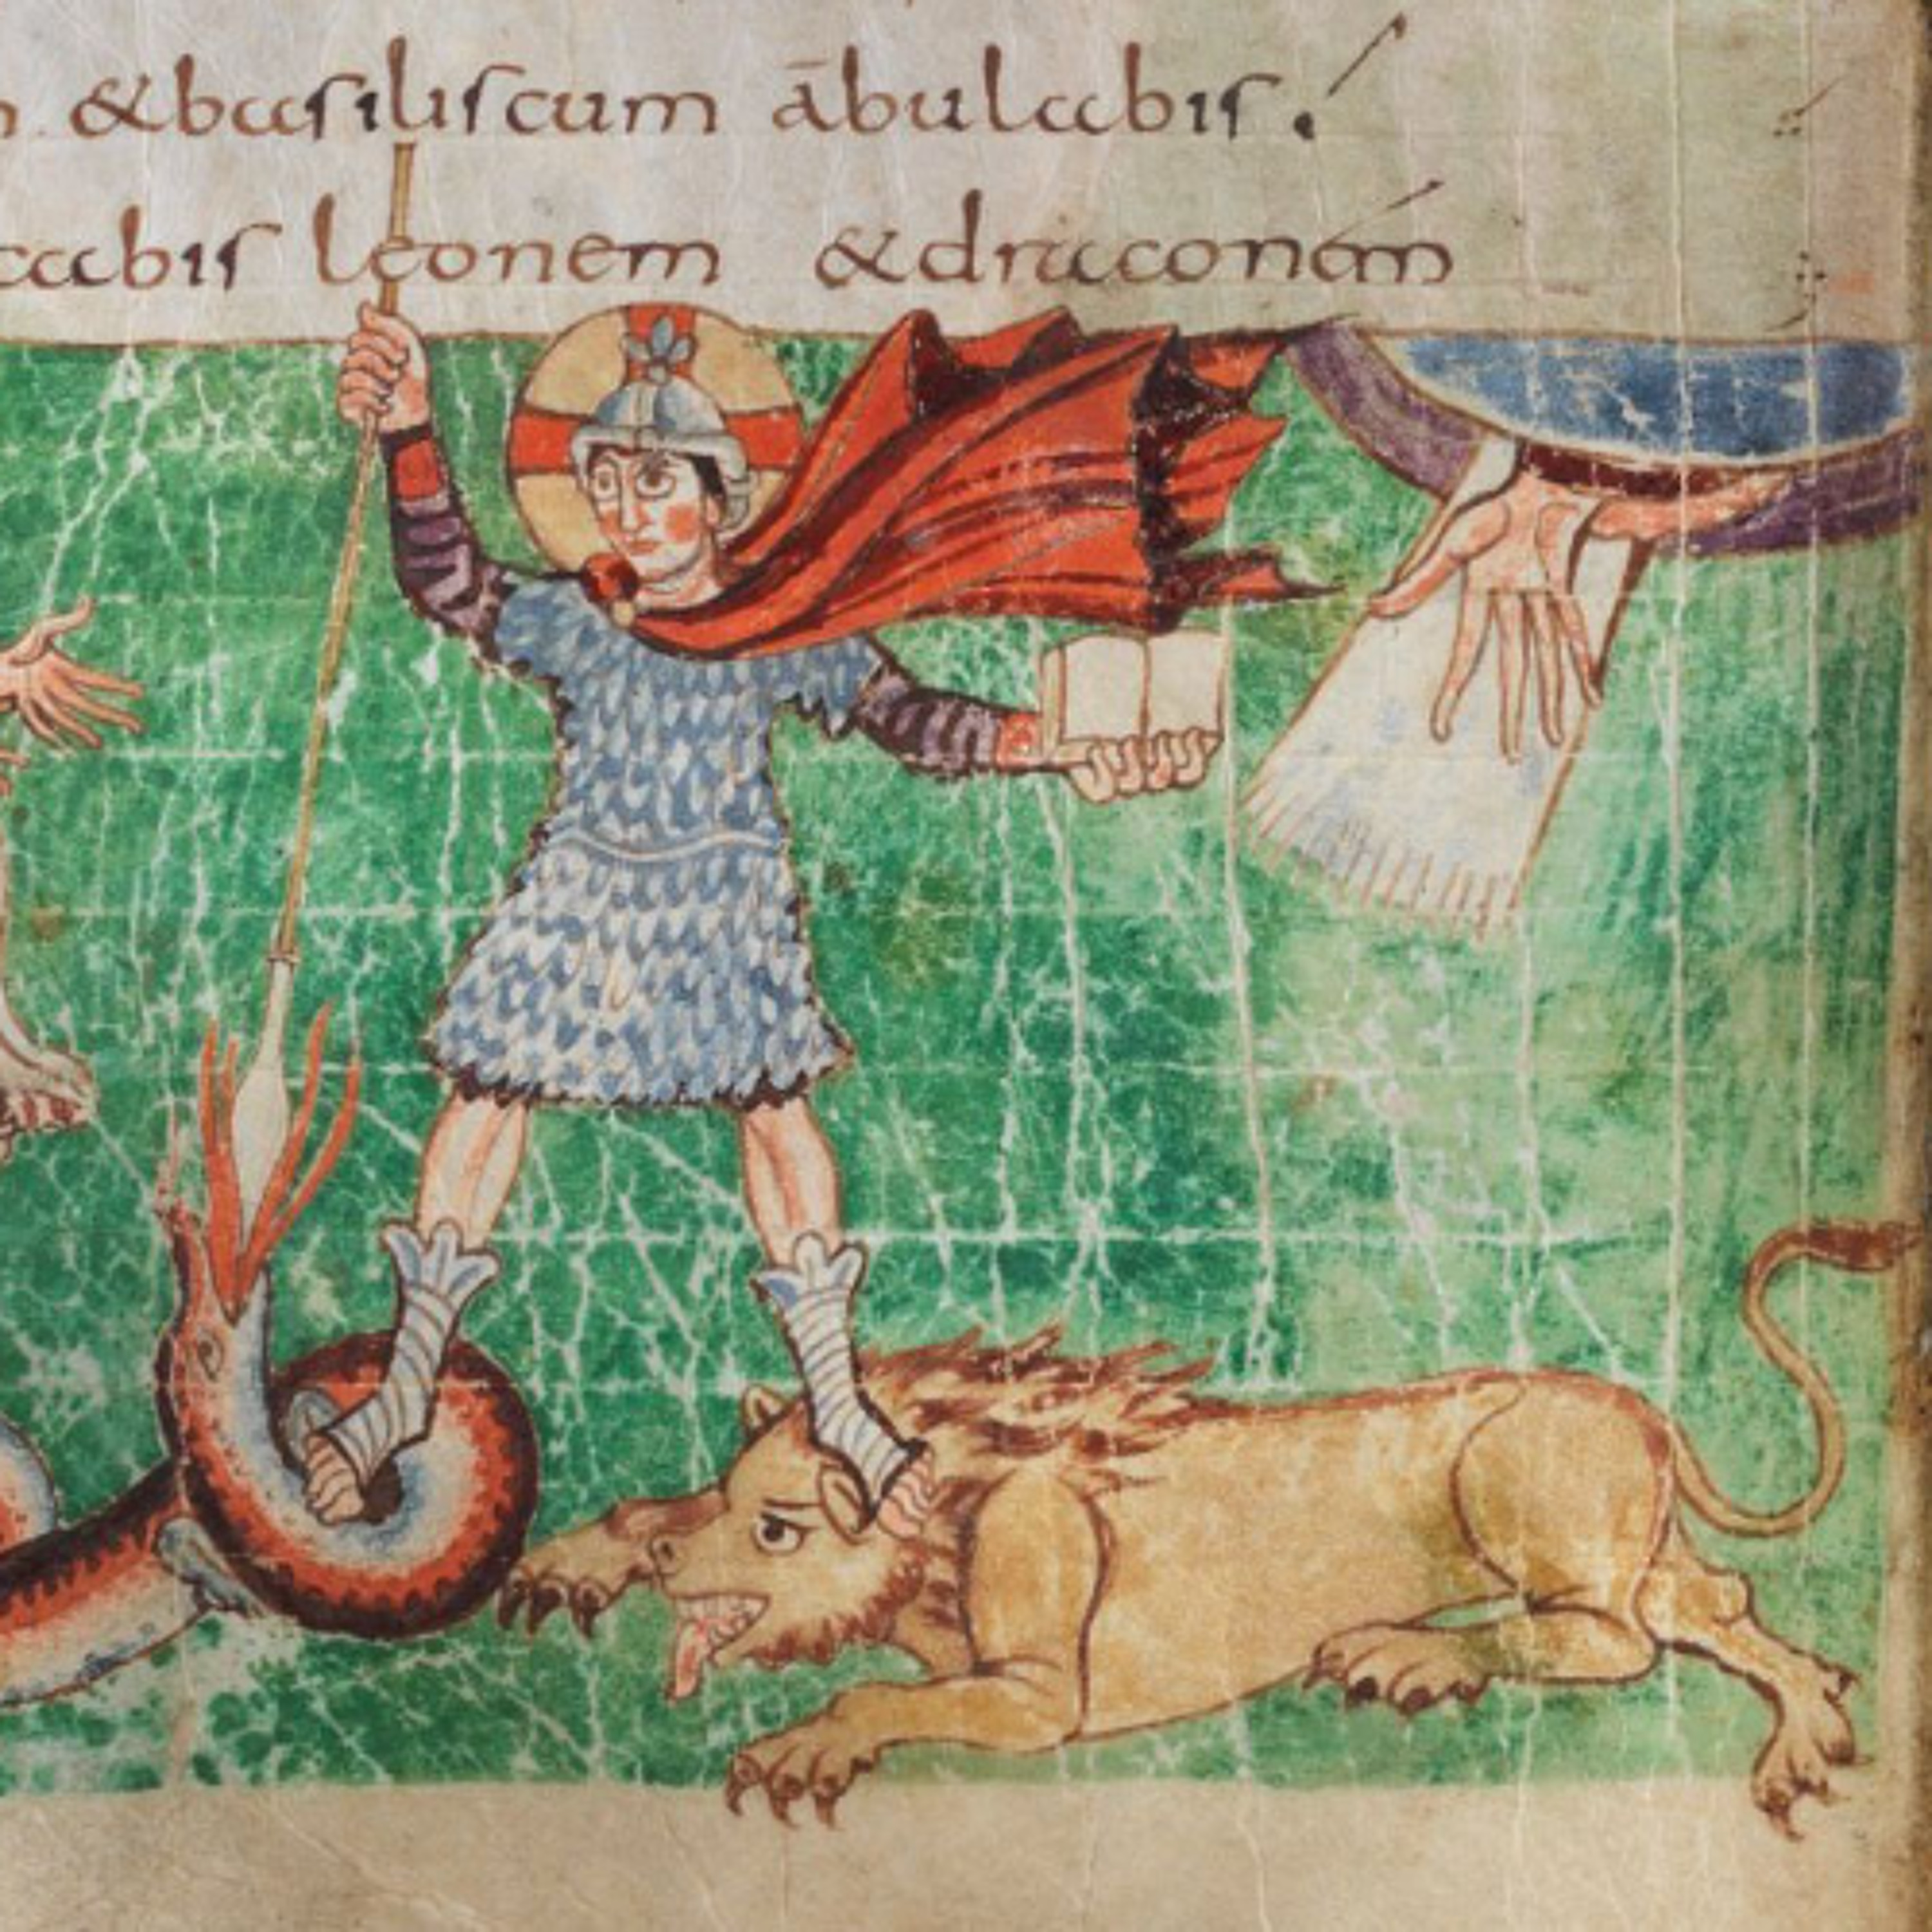 &basiliscum ābulabis.
cabis leonem &draconem